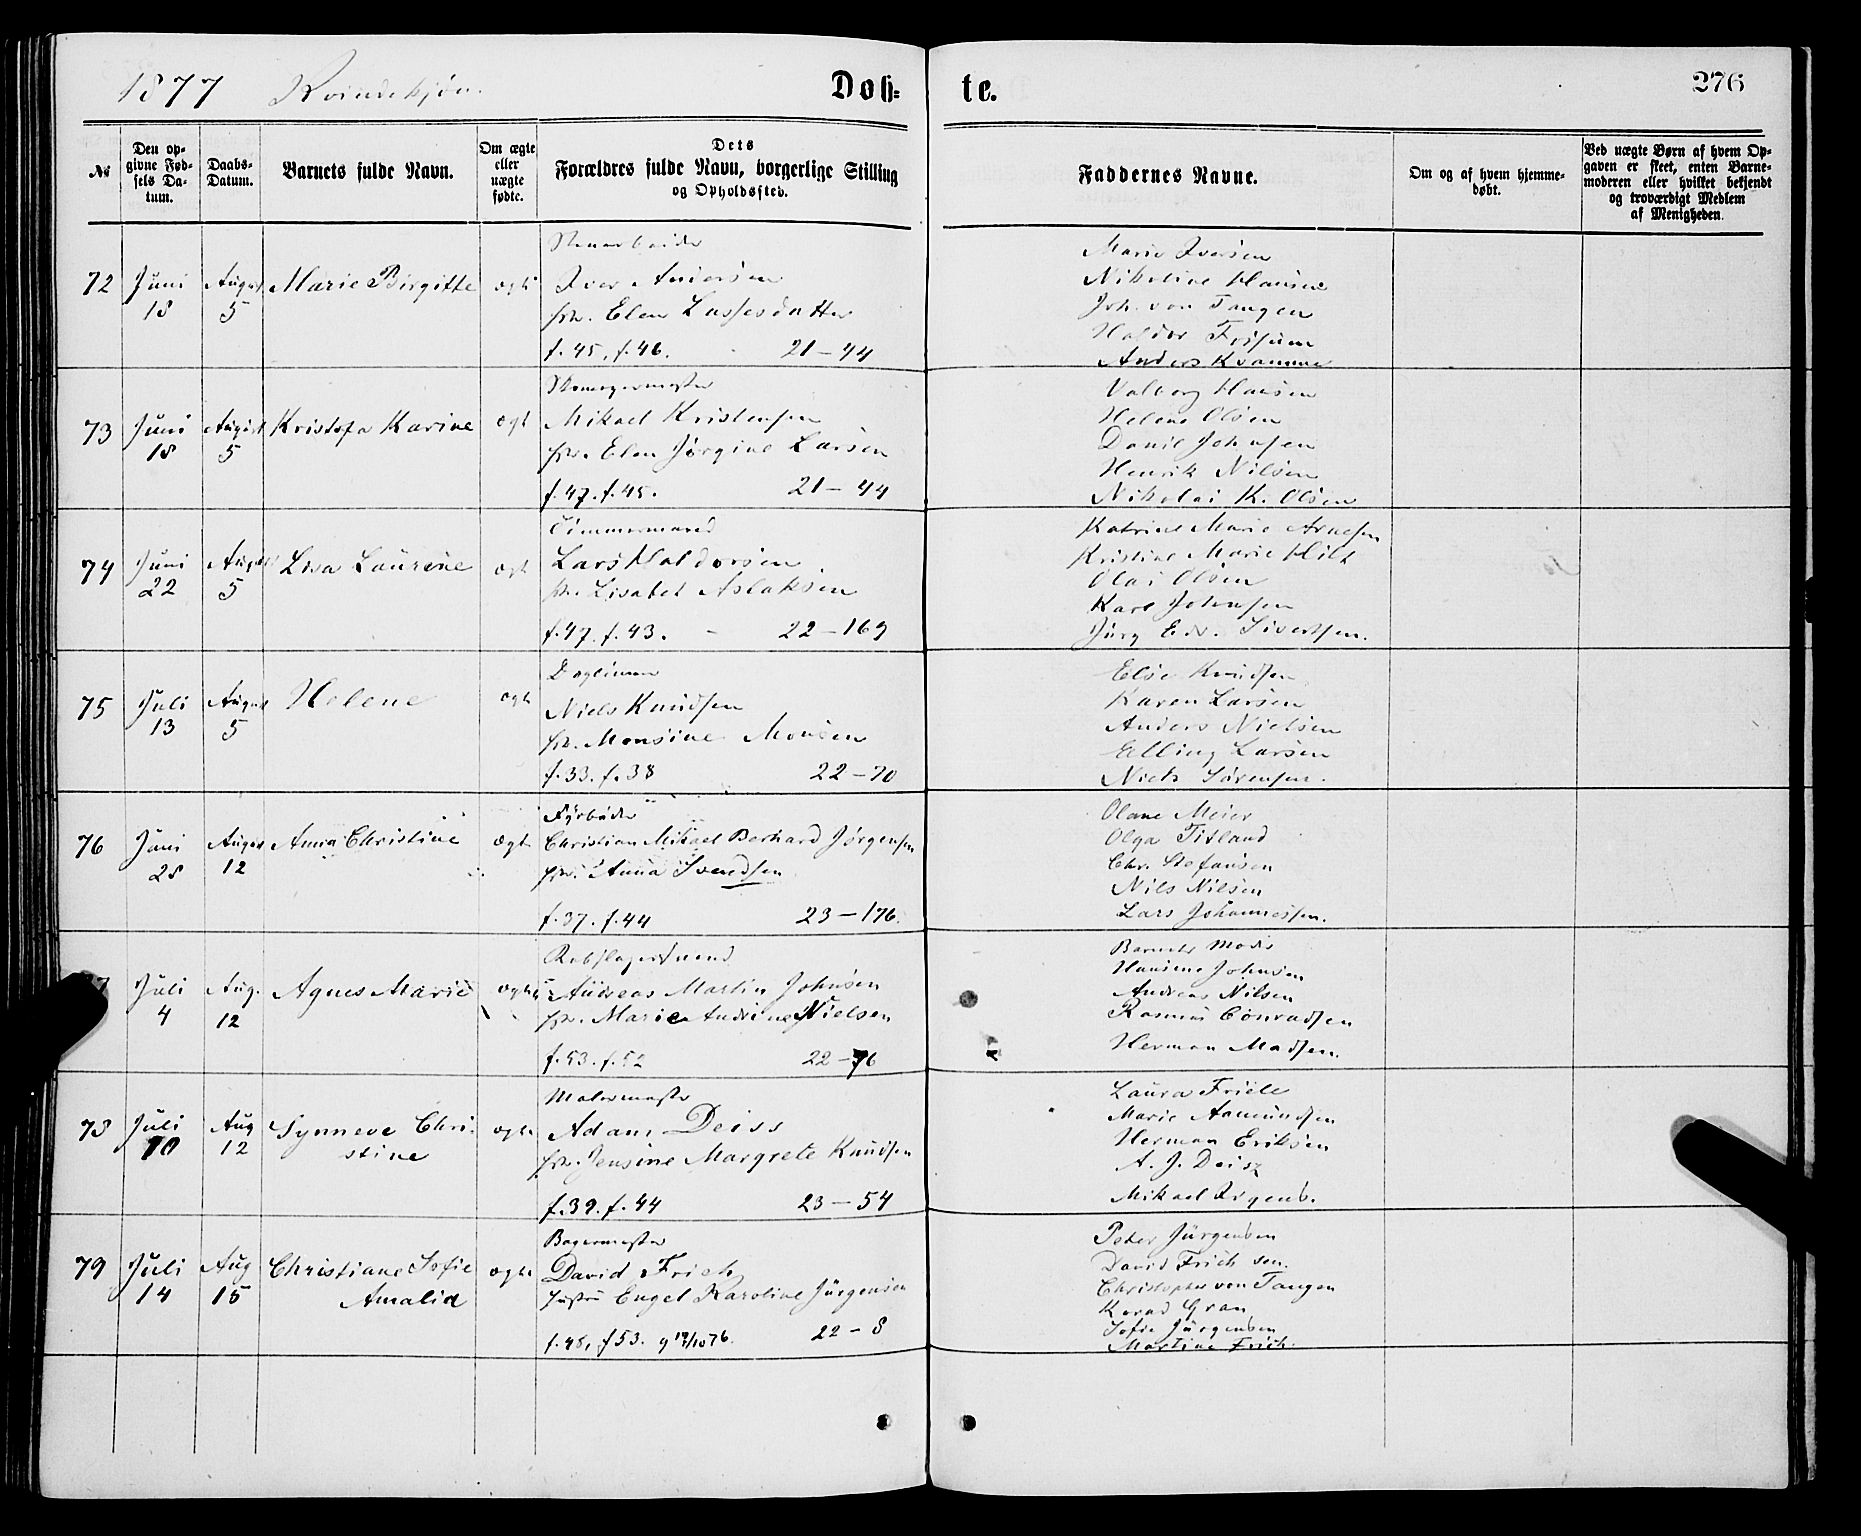 1877 Kvindekjøn.
Døb= te. 276
№
Den op-
givne Fød-
sels Da-
tum.
Daabs-
Datum.
Barnets fulde Navn.
Om ægte
eller
uægte
fødte.
Dets
Forældres fulde Navn, borgerlige Stilling
og Opholdssted.
Faddernes Navne.
Om og af hvem hjemme-
døbt.
Ved uægte Børn af hvem Op-
gaven er skeet, enten Barne-
moderen eller hvilket bekjendt
og troværdigt Medlem
af Menigheden.
72 Juni 18 August 5 Marie Birgitte ægte
Stenarbeider
Iver Andersen
Elen Lassesdatter
f. 45, f. 46. 21-44
Marie Iversen
Nikoline Hansen
Joh. von Tangen
Haldor
Anders Kvamme
73 Juni 18 August 5 Kristofa Karine ægt
Skomagermester
Mikael Kristensen
Elen Jørgine Larsen
f. 47. f. 45. 21-44
Valborg Hansen
Helene Olsen
Daniel Johnsen
Henrik Nilsen
Nikolai K. Olsen
74 Juni 22 August 5 Lisa Laurene ægt
Tømmermand
Lars Haldorsen
Lisabet Aslaksen
f. 47. f. 43. - 22-169
Katrine Marie Arnesen
Kristine Marie Hilt
Olai Olsen
Karl Johnsen
Jürg Edv. Sivertsen.
75 Juli 13 August 5 Helene ægt
Dagleier
Niels Knudsen
Monsine Monsen
f. 33. f. 38 22-70
Else Knudsen
Karen Larsen
Anders Nielsen
Elling Larsen
Niels Sørensen.
76 Juni 28 August 12 Anna Christine ægt
Fyrbøder
Christian Mikael Berhard Jørgensen
Anna Svendsen
f. 37. f. 44 23-176.
Olane Meier
Olga Titland
Chr. Stefansen
Nils Nilsen
Lars Johannessen.
77 Juli 4 Aug. 12 Agnes Marie ægte
Rebslagersvend
Andreas Martin Johnsen
Marie Andrine Nielsen
f. 53. f. 52 22-76
Barnets Moder
Hansine Johnsen
Andreas Nilsen
Rasmus Conradsen
Herman Madsen.
78 Juli 10 Aug 12 Synneve Chri-
stine ægte
Malermester
Adam Deiss
Jensine Margrete Knudsen
f. 39. f. 44 23-54
Laura Friele
Marie Aamundsen
Herman Eriksen
A. J. Deisz
Mikael
79 Juli 14 Aug 15 Christiane Sofie
Amalia ægte
Bagermester
David Frich
Hustru Engel Karoline Jürgensen
f. 48, f 53. g 19/10 76. 22-8
Peter Jürgensen
David Frich sen.
Christopher von Tangen
Konrad Gran
Sofie Jürgensen
Martine Frich.